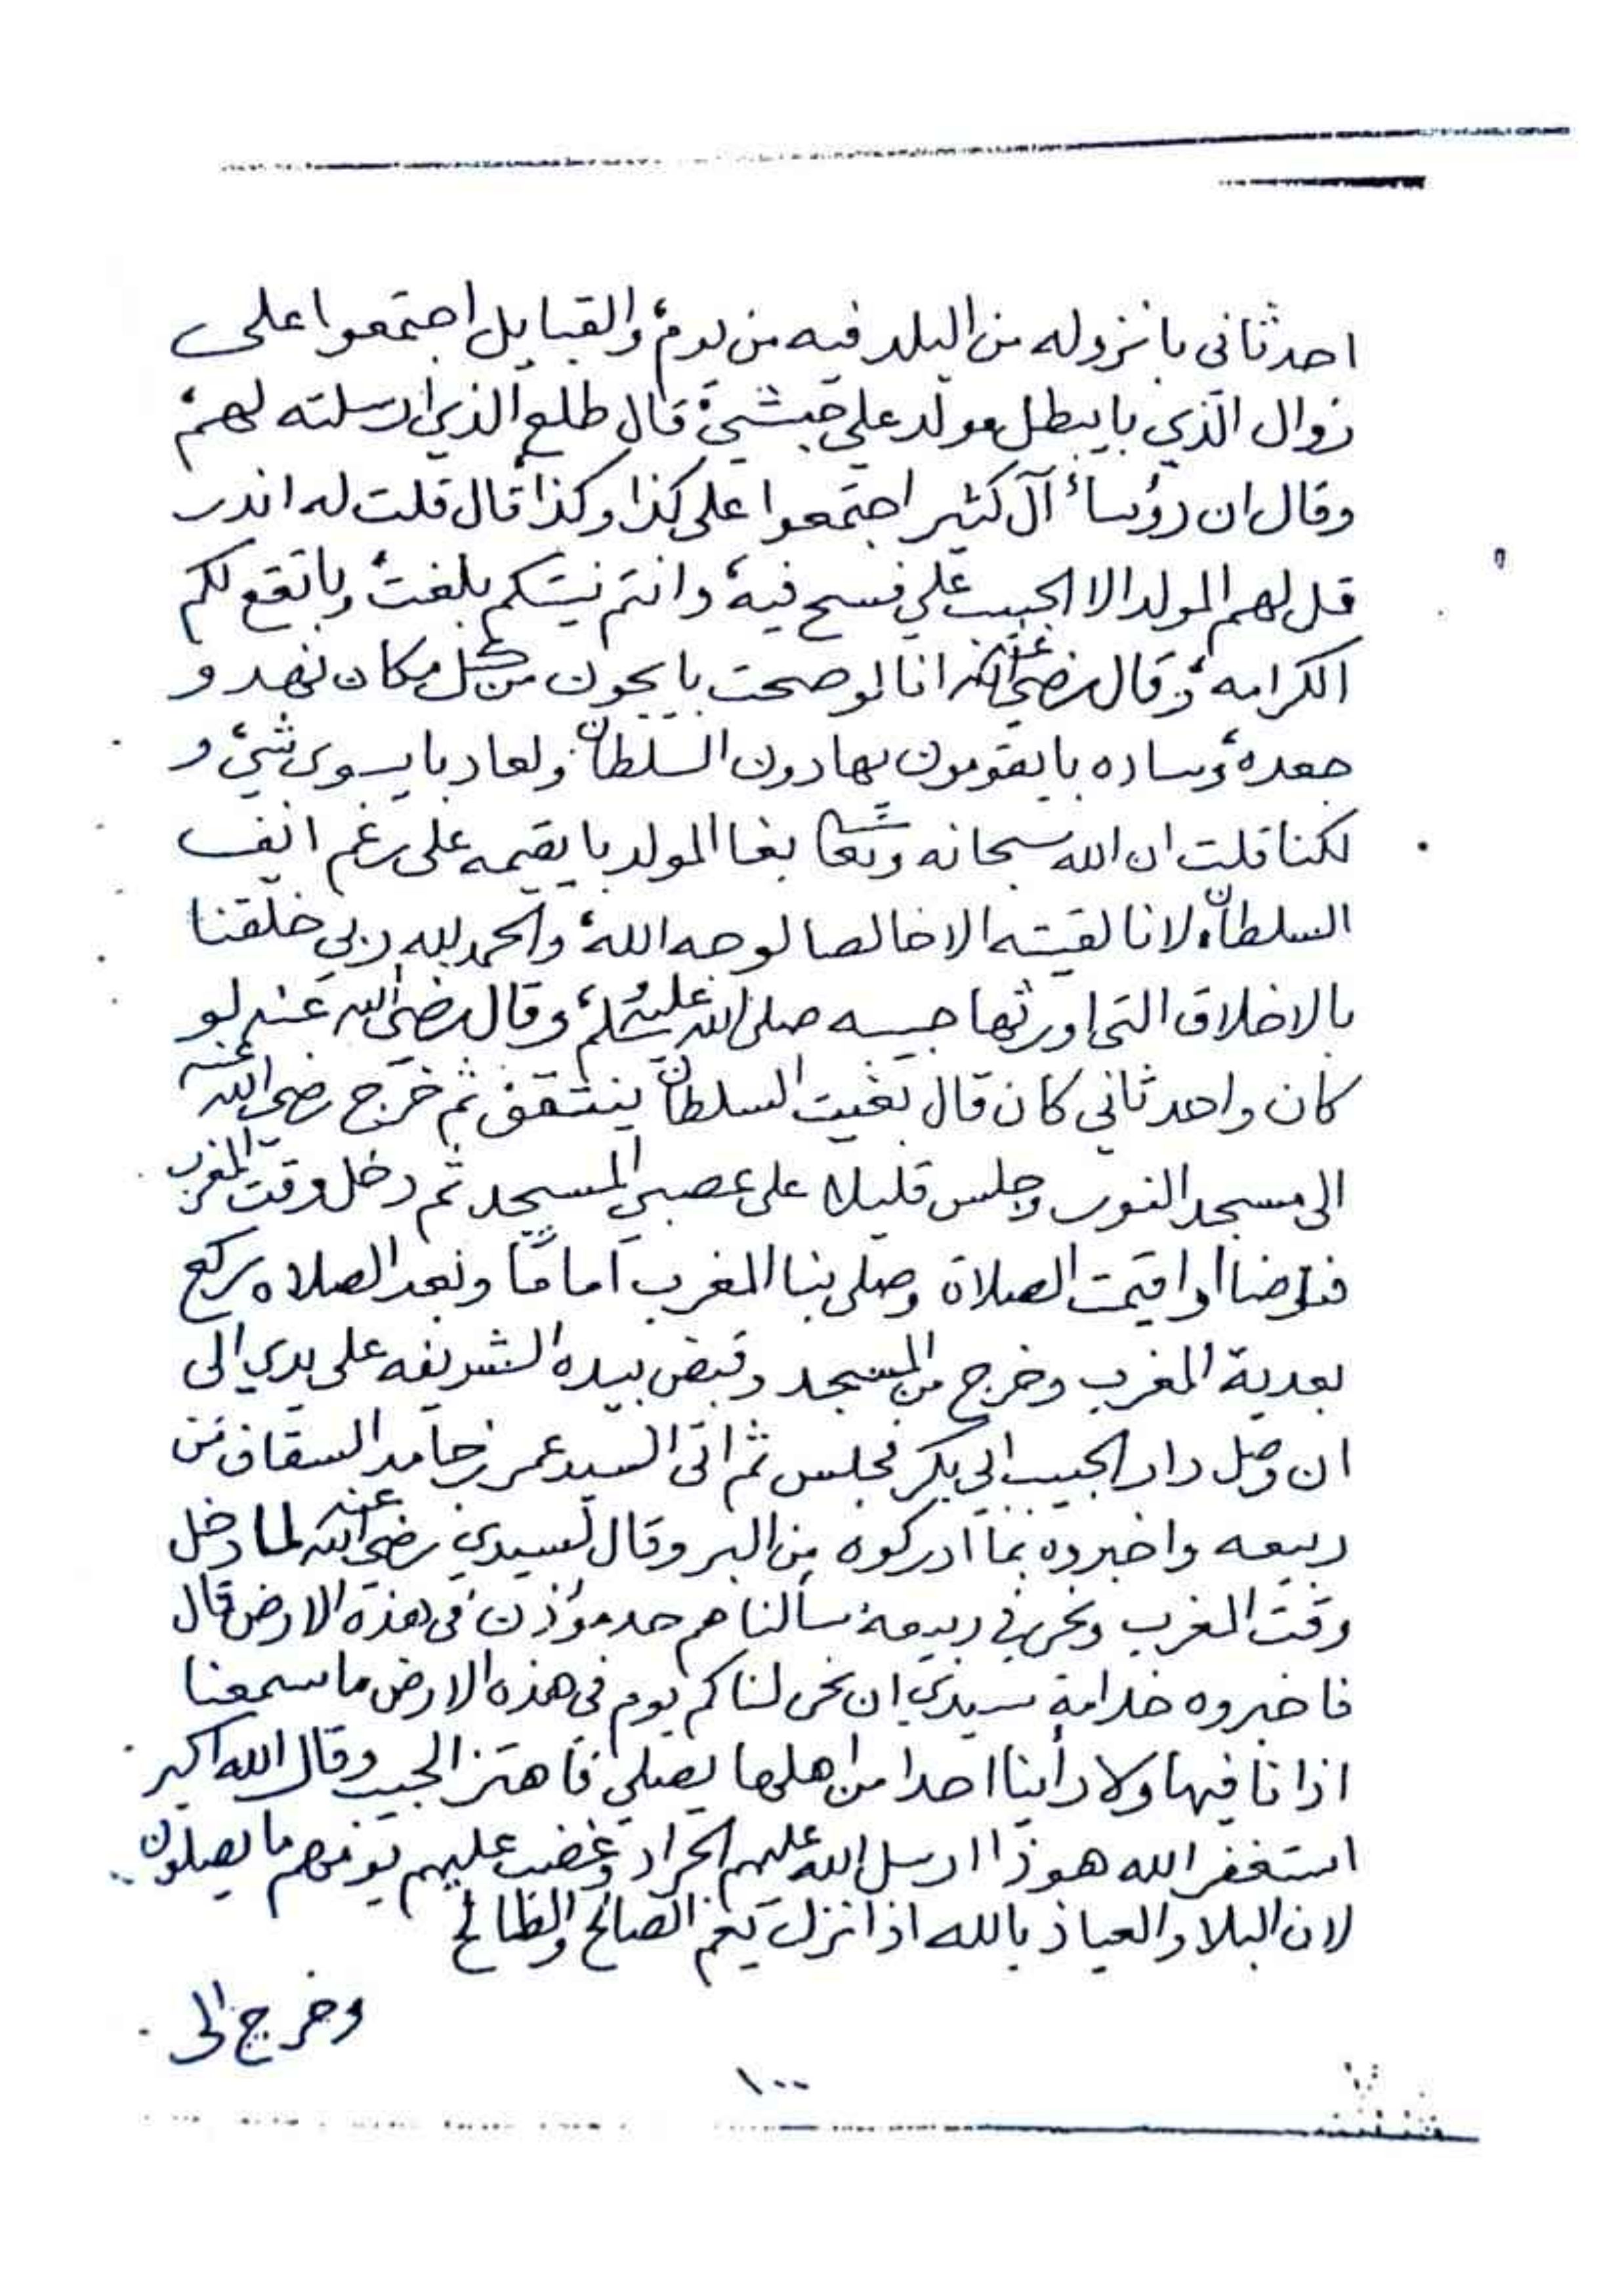 احد ثاني بانزوله من البلد فيه من يوم، والقبايل اجتمعوا على
زوال الذي بايبطل مولد علي حبشي، قال طلع الذي ارسلته لهم،
وقال ان رؤساء آل كثير اجتمعوا على كذا وكذا قال قلت له اندر
قل لهم المولد الا الحبيب علي فسح فيه، وانتم نيتكم بلغت، وباتقع لكم
الكرامه، وقال رضي الله عنه انا لو صحت بايجون من كل مكان نهد و
جعده، وساده بايقومون بهادون السلطان ولعاد بايسوى شيء و
لكنا قلت ان الله سبحانه وتعالى بغا المولد بايقيمه على رغم انف
السلطان، لانا لقيته الا خالصا لوجه الله، والحمد لله ربي خلقنا
بالاخلاق التي اورثها حبيبه صلى الله عليه وسلم، وقال رضي الله عنه لو
كان واحد ثاني كان قال بغيت السلطان ينتقف ثم خرج رضي الله عنه
الى مسجد النور وجلس قليلا على عصبي المسجد ثم دخل وقت المغرب
فتوضا واقيمت الصلاة وصلى بنا المغرب اماما وبعد الصلاه ركع
بعدية المغرب وخرج من المسجد وقبض بيده الشريفه على يدي الى
ان وصل دار الحبيب ابي بكر فجلس ثم اتى السيد عمر بن حامد السقاف من
ربيعه واخبروه بما ادركوه من البر وقال لسيدي رضي الله عنه لما دخل
وقت المغرب ونحن في ربيعه سألناهم حد مؤذن في هذه الارض قال
فاخبروه خدامة سيدي ان نحن لنا كم يوم في هذه الارض ما سمعنا
اذانا فيها ولا رأينا احدا من اهلها يصلي فاهتز الحبيب وقال الله اكبر
استغفر الله هو ذا ارسل الله عليهم الجراد وغضب عليهم يوم هم ما يصلون
لان البلا والعياذ بالله اذا نزل يعم الصالح والطالح
وخرج الى
١٠٠